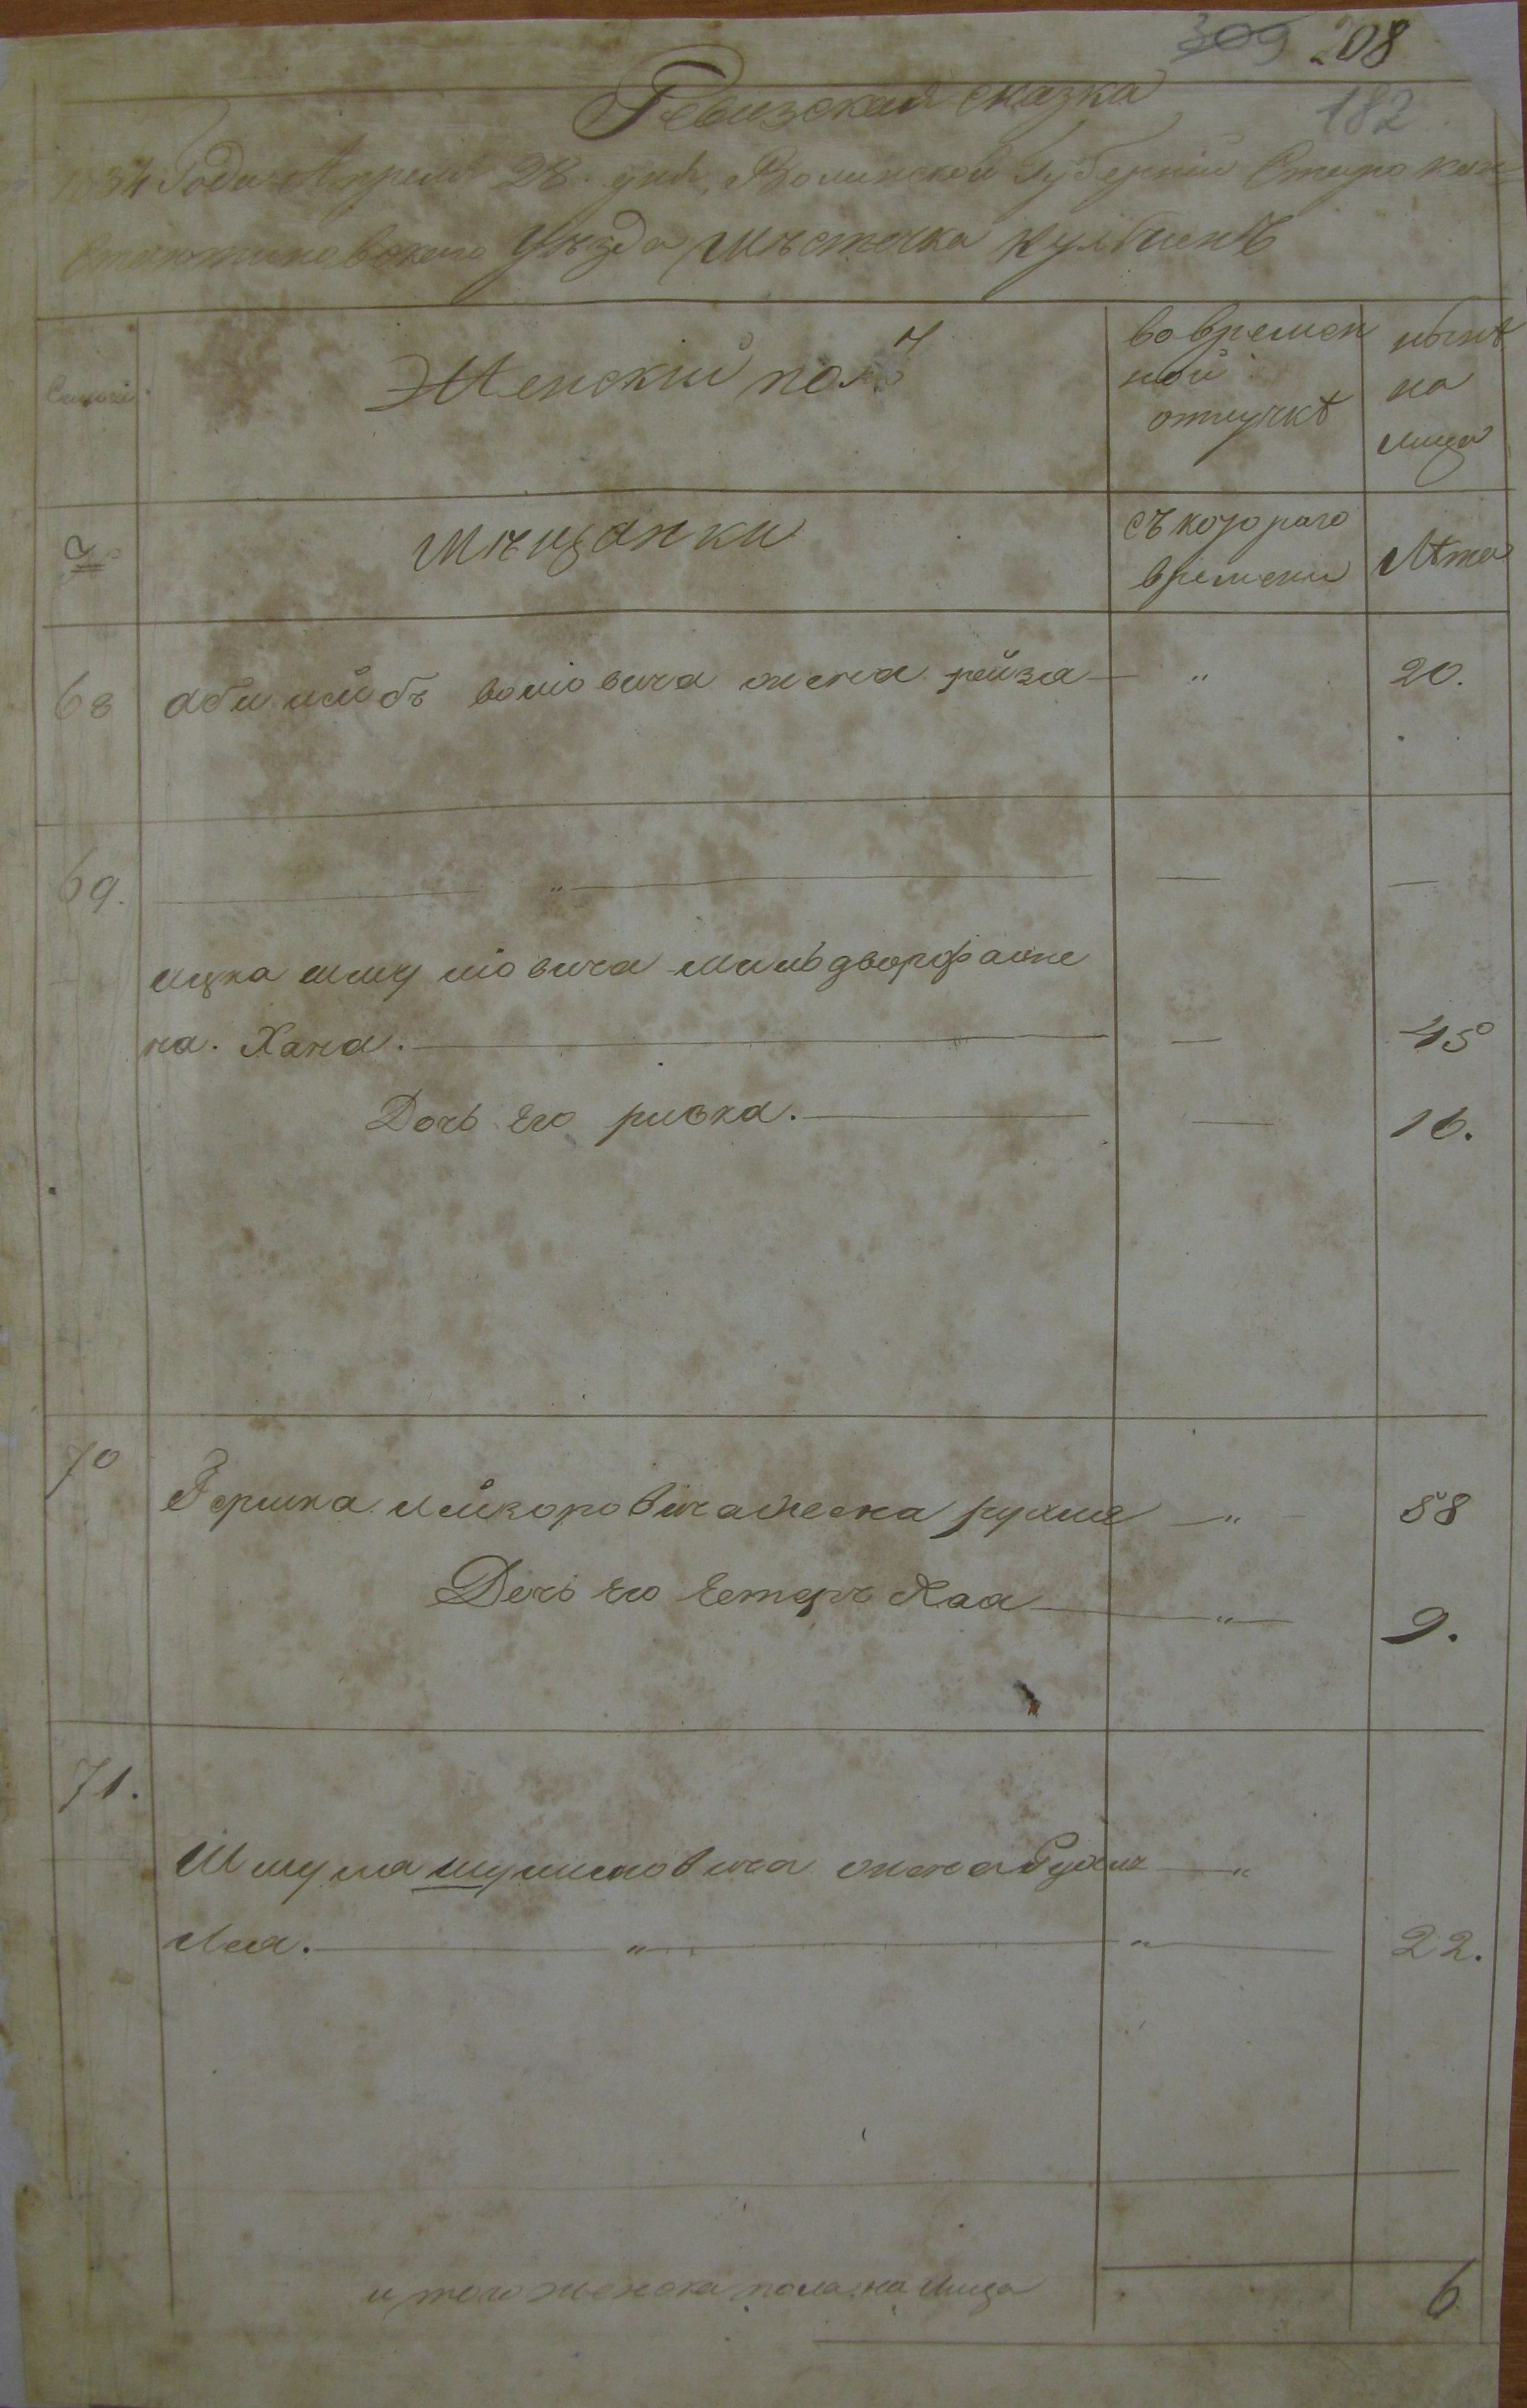 309 208
182
Ревизская сказка
1834 Года Апреля 28. дня, Волинской Губернии Старокон
стантиновского Уезда Местечка Кульчинъ
Женский полъ
во времен
ной
отлучкѣ
нынѣ
на
лицо
Мещанки
съ которого
времени
Лѣта
68 Абы лейбъ вольовича жена рейза — " 20.
69. — " — — —
ицка шмульовича Мильдворфа жена
на. Хана. — — 45
Дочь Его ривка. — — 16.
70 Гершка лейзоровича жена рухля — " 58
Дочь Его Естеръ Хая — " — 9.
71.
Шмуля шулимовича жена Рухля — "
Лея. — " — " — 22.
итого женска пола на лицо 6